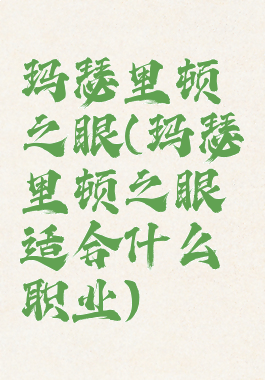 玛瑟里顿
之眼(玛瑟
里顿之眼
适合什么
职业)